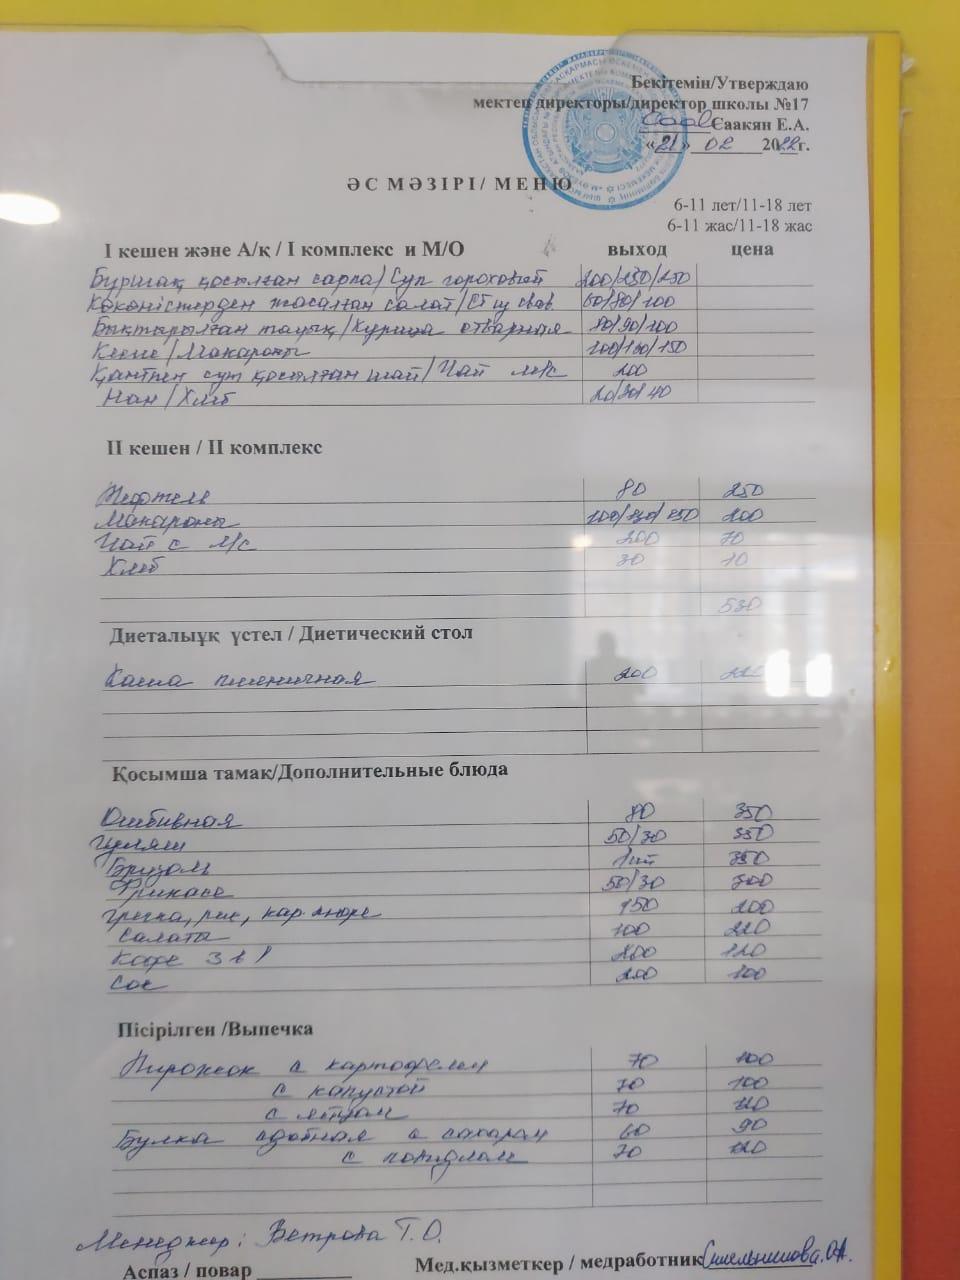 Бекітемін/Утверждаю
мектеп директоры/директор школы №17
Саакян Е.А.
«21» 02 2022г.
ӘС МӘЗІРІ/ МЕНЮ
6-11 лет/11-18 лет
6-11 жас/11-18 жас
І кешен және А/қ / І комплекс и М/О выход цена
Бұршақ қосылған сорпа/Суп гороховый 200/250/250
Көкөністерден жасалған салат/ 60/80/100
Бықтырылған тауық/Курица отварная 80/90/100
Кеспе/Макароны 100/130/150
Қантпен сүт қосылған шай/Чай м/с 200
Нан/Хлеб 20/30/40
ІІ кешен / ІІ комплекс
Тефтель 80 250
Макароны 100/130/150 200
Чай с м/с 200 70
Хлеб 30 10
530
Диеталыұқ үстел / Диетический стол
Каша пшеничная 200
Қосымша тамак/Дополнительные блюда
Отбивная 80 350
Гуляш 50/30 350
Бризоль 1шт 350
Фрикасе 50/30 300
Гречка, рис, кар. пюре 150 200
Салаты 100 220
Кофе 3 в 1 200 120
Сок 200 100
Пісірілген /Выпечка
Пирожок с картофелем 70 100
с капустой 70 100
с яйцом 70 120
Булка сдобная с сахаром 60 90
с повидлом 70 120
Менеджер: Ветрова Т.О.
Аспаз / повар
Мед.қызметкер / медработник